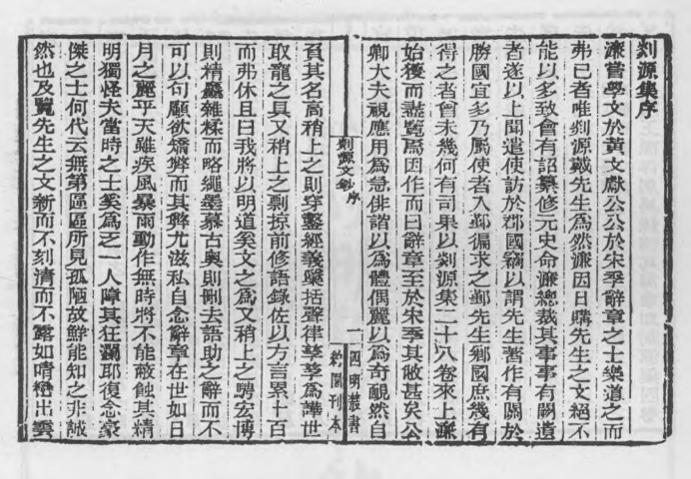 剡源集序
濂嘗學文於黃文獻公公於宋季辭章之士樂道之而
弗已者唯剡源戴先生爲然濂因日購先生之文絕不
能以多致會有詔纂修元史命濂總裁其事事有闕遺
者遂以上聞遣使訪於郡國竊以謂先生著作有關於
勝國宜多乃屬使者入鄞徧求之鄞先生鄉國庶幾有
得之者曾未幾何有司果以剡源集二十八卷來上濂
始獲而盡覽焉因作而曰辭章至於宋季其敝甚矣公
卿大夫視應用爲急俳諧以爲體偶儷以爲奇靦然自
剡源文鈔 序
一
四明叢書
約園刊本
負其名高稍上之則穿鑿經義櫽括聲律孳孳爲譁世
取寵之具又稍上之剽掠前修語錄佐以方言累十百
而弗休且曰我將以明道奚文之爲又稍上之騁宏博
則精麤雜糅而略繩墨慕古奧則刪去語助之辭而不
可以句顧欲矯弊而其弊尤滋私自念辭章在世如日
月之麗乎天雖疾風暴雨動作無時將不能蔽蝕其精
明獨怪夫當時之士奚爲乏一人障其狂瀾耶復念豪
傑之士何代云無第區區所見孤陋故鮮能知之非誠
然也及覽先生之文新而不刻清而不露如晴巒出雲